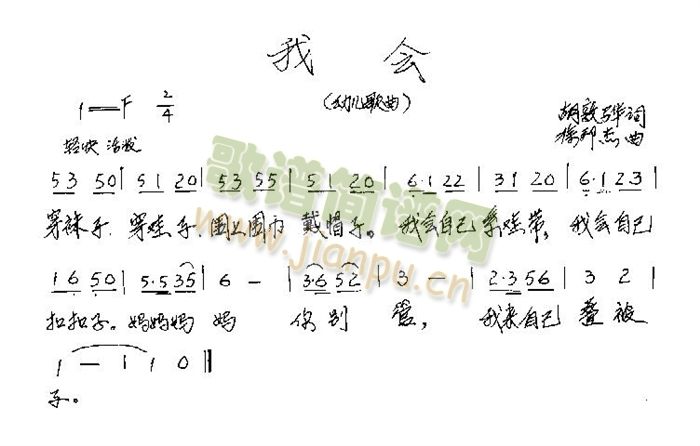 我 会
(幼儿歌曲)
1=F 2/4
胡敦骅词
徐邦杰曲
轻快 活泼
53 50 | 51 20 | 53 55 | 51 20 | 6·1 22 | 31 20 | 6·1 2 3 |
穿袜子, 穿鞋子, 围上围巾 戴帽子。 我会自己系鞋带, 我会自己
16 50 | 5·5 35 | 6 - | 3·6 52 | 3 - | 2·3 56 | 3 2 |
扣扣子。 妈妈妈 妈 你别 管, 我来自己 叠被
1 - | 1 0 ||
子。
歌谱简谱网
www.jianpu.cn